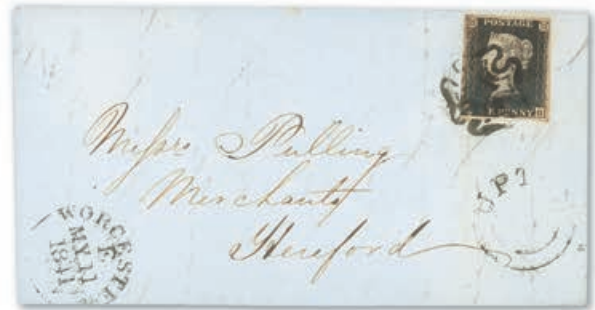 POSTAGE
E PENNY
Messrs Pulling
Merchants
Hereford
UPT
WORCESTE
E
MY 11
1841